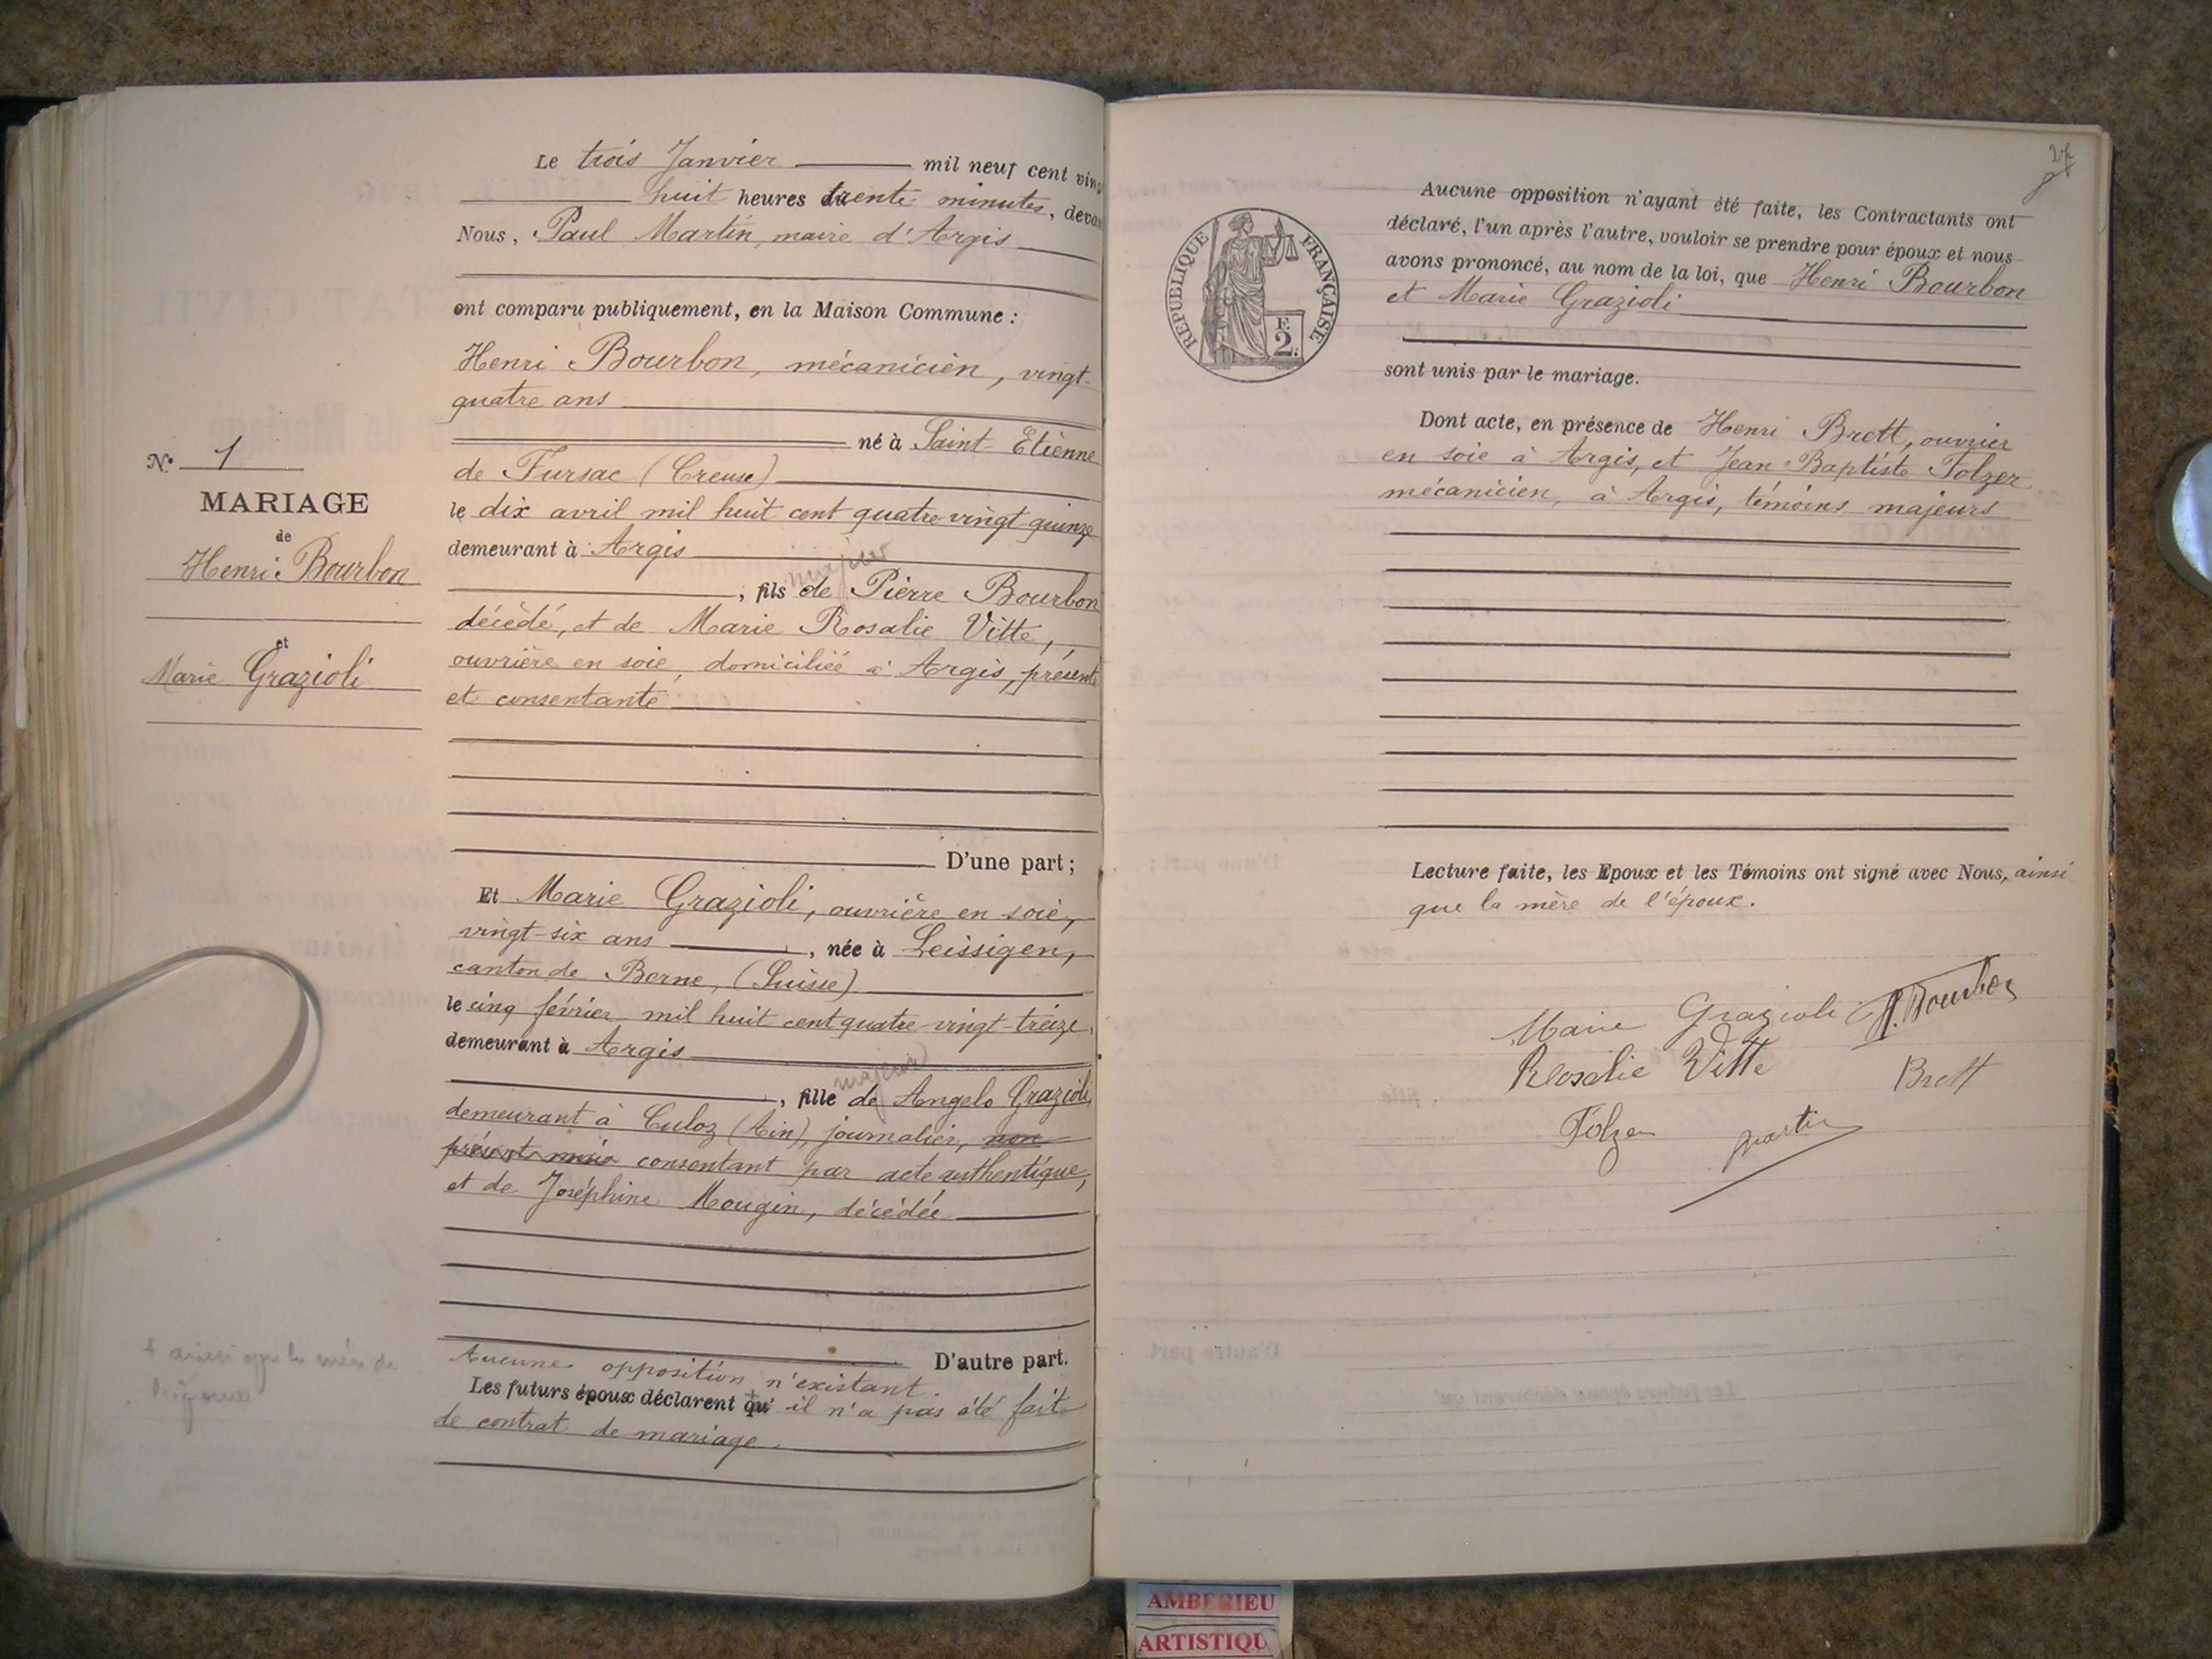 Le trois Janvier mil neuf cent ving
huit heures trente minutes, devan
Nous, Paul Martin, maire d'Argis
ont comparu publiquement, en la Maison Commune :
Henri Bourbon, mécanicien, vingt-
quatre ans
né à Saint-Etienne
de Fursac (Creuse)
le dix avril mil huit cent quatre-vingt-quinze
demeurant à Argis
majeur
, fils de Pierre Bourbon
décédé, et de Marie Rosalie Vitte,
ouvrière en soie, domiciliée à Argis, présente
et consentante
D'une part ;
N° 1
MARIAGE
de
Henri Bourbon
et
Marie Grazioli
Et Marie Grazioli, ouvrière en soie,
vingt-six ans, née à Leissigen,
canton de Berne, (Suisse)
le cinq février mil huit cent quatre-vingt-treize,
demeurant à Argis
majeure
, fille de Angelo Grazioli,
demeurant à Culoz (Ain), journalier, non
présent mais consentant par acte authentique,
et de Joséphine Mougin, décédée
D'autre part.
Aucune opposition n'existant.
Les futurs époux déclarent qu'il n'a pas été fait
de contrat de mariage.
+ ainsi que la mère de
l'époux
2 F.
REPUBLIQUE FRANÇAISE
Aucune opposition n'ayant été faite, les Contractants ont
déclaré, l'un après l'autre, vouloir se prendre pour époux et nous
avons prononcé, au nom de la loi, que Henri Bourbon
et Marie Grazioli
sont unis par le mariage.
Dont acte, en présence de Henri Brett, ouvrier
en soie à Argis, et Jean-Baptiste Folzer
mécanicien, à Argis, témoins majeurs
Lecture faite, les Epoux et les Témoins ont signé avec Nous, ainsi
que la mère de l'époux.
Marie Grazioli H. Bourbon
Rosalie Vitte
Brett
Folzer
Martin
AMBERIEU
ARTISTIQU